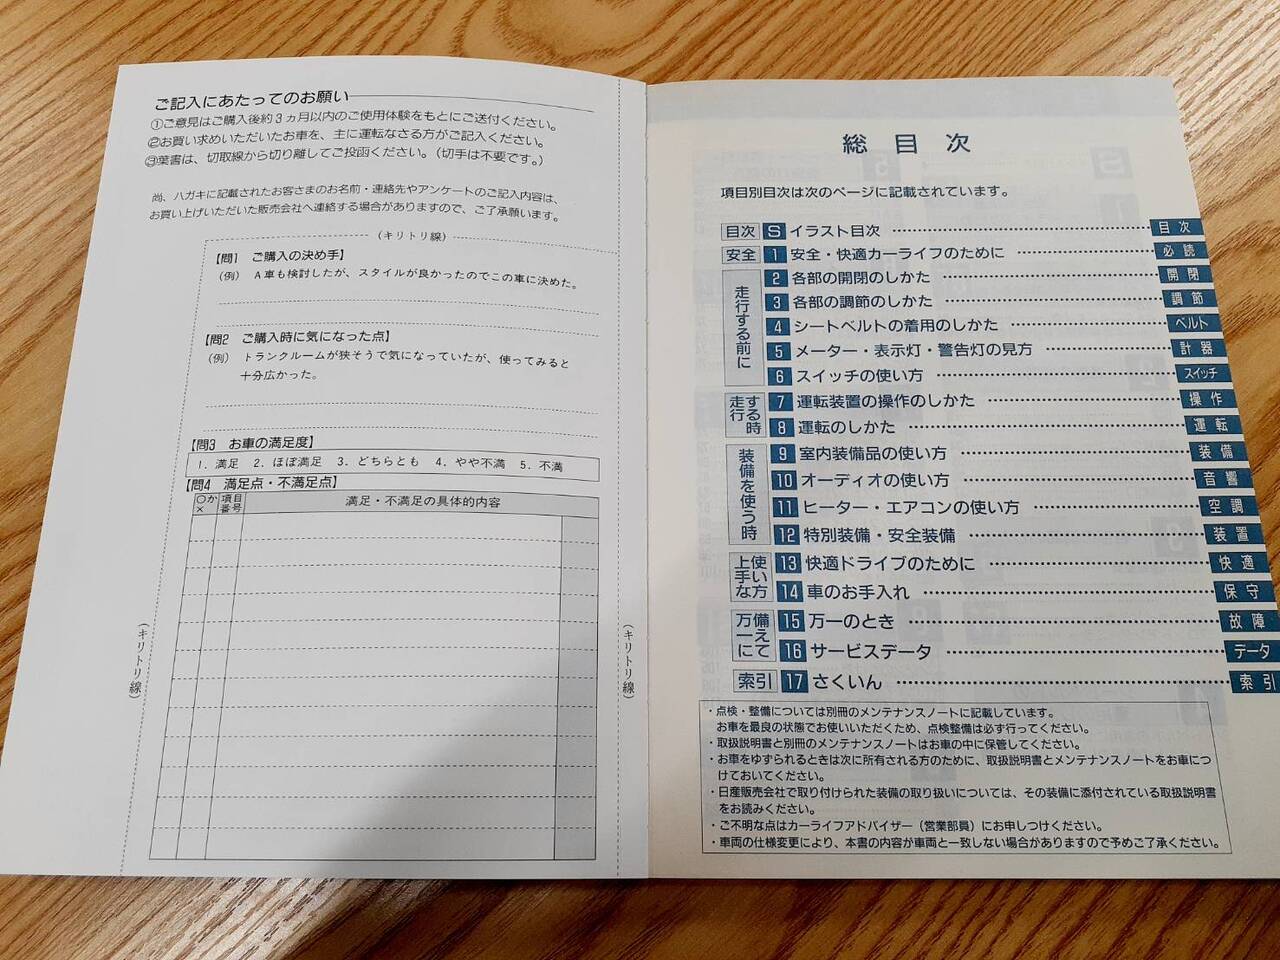 ご記入にあたってのお願い
①ご意見はご購入後約3ヵ月以内のご使用体験をもとにご送付ください。
②お買い求めいただいたお車を、主に運転なさる方がご記入ください。
③葉書は、切取線から切り離してご投函ください。(切手は不要です。)
尚、ハガキに記載されたお客さまのお名前・連絡先やアンケートのご記入内容は、
お買い上げいただいた販売会社へ連絡する場合がありますので、ご了承願います。
(キリトリ線)
【問1 ご購入の決め手】
(例) A車も検討したが、スタイルが良かったのでこの車に決めた。
【問2 ご購入時に気になった点】
(例) トランクルームが狭そうで気になっていたが、使ってみると
十分広かった。
【問3 お車の満足度】
1. 満足 2. ほぼ満足 3. どちらとも 4. やや不満 5. 不満
【問4 満足点・不満足点】
○か× 項目番号 満足・不満足の具体的内容
(キリトリ線)
(キリトリ線)
総目次
項目別目次は次のページに記載されています。
目次 S イラスト目次 目次
安全 1 安全・快適カーライフのために 必読
走行する前に
2 各部の開閉のしかた 開閉
3 各部の調節のしかた 調節
4 シートベルトの着用のしかた ベルト
5 メーター・表示灯・警告灯の見方 計器
6 スイッチの使い方 スイッチ
走行する時
7 運転装置の操作のしかた 操作
8 運転のしかた 運転
装備を使う時
9 室内装備品の使い方 装備
10 オーディオの使い方 音響
11 ヒーター・エアコンの使い方 空調
12 特別装備・安全装備 装置
上手な使い方
13 快適ドライブのために 快適
14 車のお手入れ 保守
万一に備えて
15 万一のとき 故障
16 サービスデータ データ
索引 17 さくいん 索引
・点検・整備については別冊のメンテナンスノートに記載しています。
お車を最良の状態でお使いいただくため、点検整備は必ず行ってください。
・取扱説明書と別冊のメンテナンスノートはお車の中に保管してください。
・お車をゆずられるときは次に所有される方のために、取扱説明書とメンテナンスノートをお車につ
けておいてください。
・日産販売会社で取り付けられた装備の取り扱いについては、その装備に添付されている取扱説明書
をお読みください。
・ご不明な点はカーライフアドバイザー(営業部員)にお申しつけください。
・車両の仕様変更により、本書の内容が車両と一致しない場合がありますので予めご了承ください。